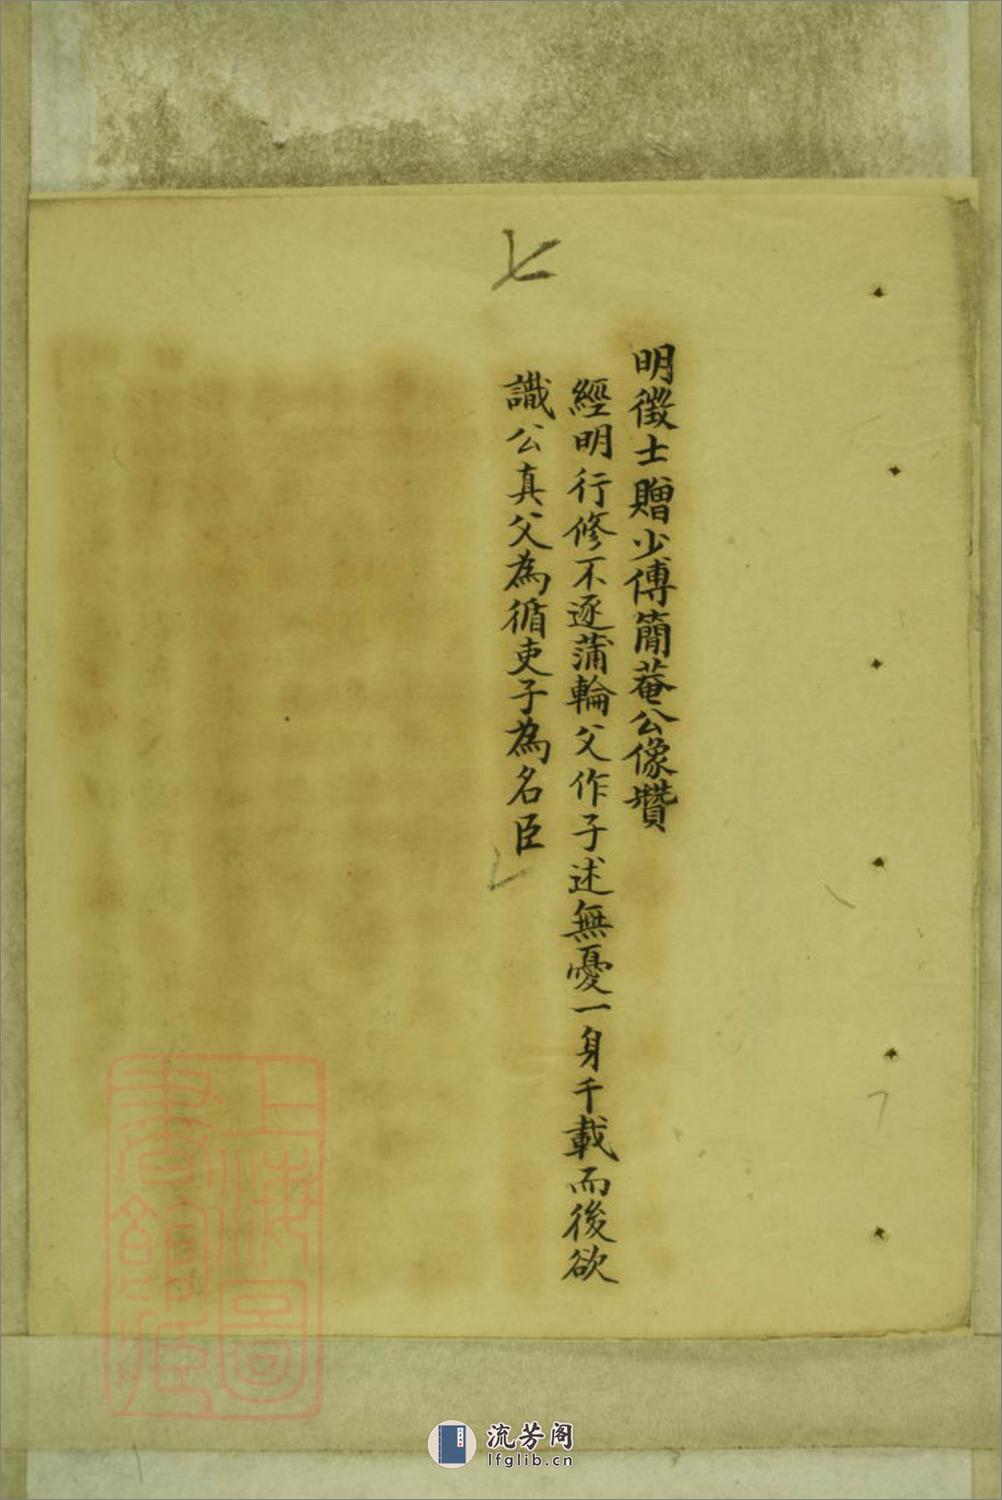 七
明徵士贈少傅簡菴公像贊
經明行修不逐蒲輪父作子述無憂一身千載而後欲
識公真父為循吏子為名臣
上海圖
書館藏
流芳阁
lfglib.cn